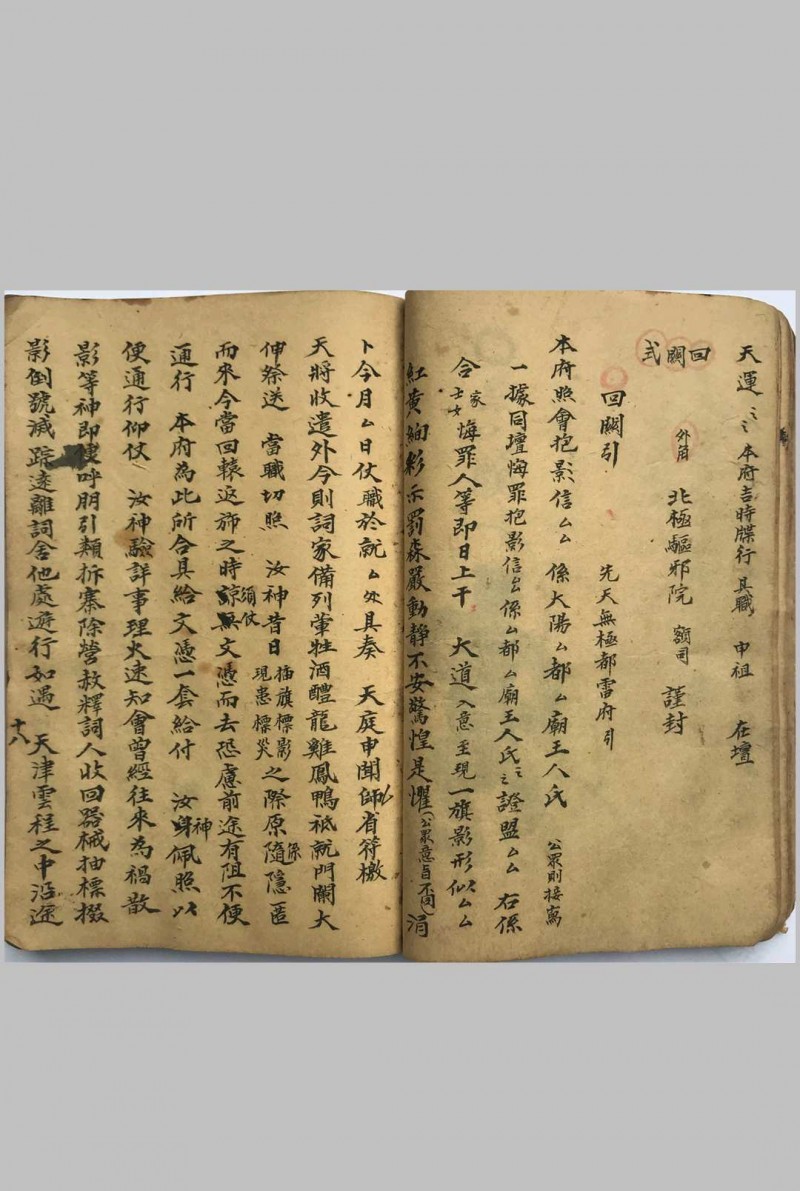 天運〻本府吉時牒行 具職 申祖 在壇
回關式 外甬 北極驅邪院 額司 謹封
回關引 先天無極都雷府引
本府照會抱影信厶厶 係大陽厶都厶廟王人氏 公眾則接寫
一據同壇悔罪抱影信厶係厶都厶廟王人氏〻證盟厶厶 右係
合家士女悔罪人等即日上干 大道入意至現一旗影形似厶厶
紅黃絢彩示罰森嚴動靜不安驚惶是懼(公眾意旨不同)涓
卜今月厶日仗職於就厶处具奏 天庭申聞師省符檄
天將收遣外今則詞家備列葷牲酒醴龍雞鳳鴨祗就門闌大
伸祭送 當職切照 汝神昔日插旗標影現患標災之際原係隨隱匿
而來今當回轅返斾之時諒須仗無文憑而去恐慮前途有阻不便
通行 本府為此所合具給文憑一套給付 汝神身佩照以
便通行仰仗 汝神驗詳事理火速知會曾經往來為禍散
影等神即使呼朋引類拆寨除營赦釋詞人收回器械抽標掇
影倒號滅踪遠離詞舍他處遊行如遇 天津雲程之中沿途
十八